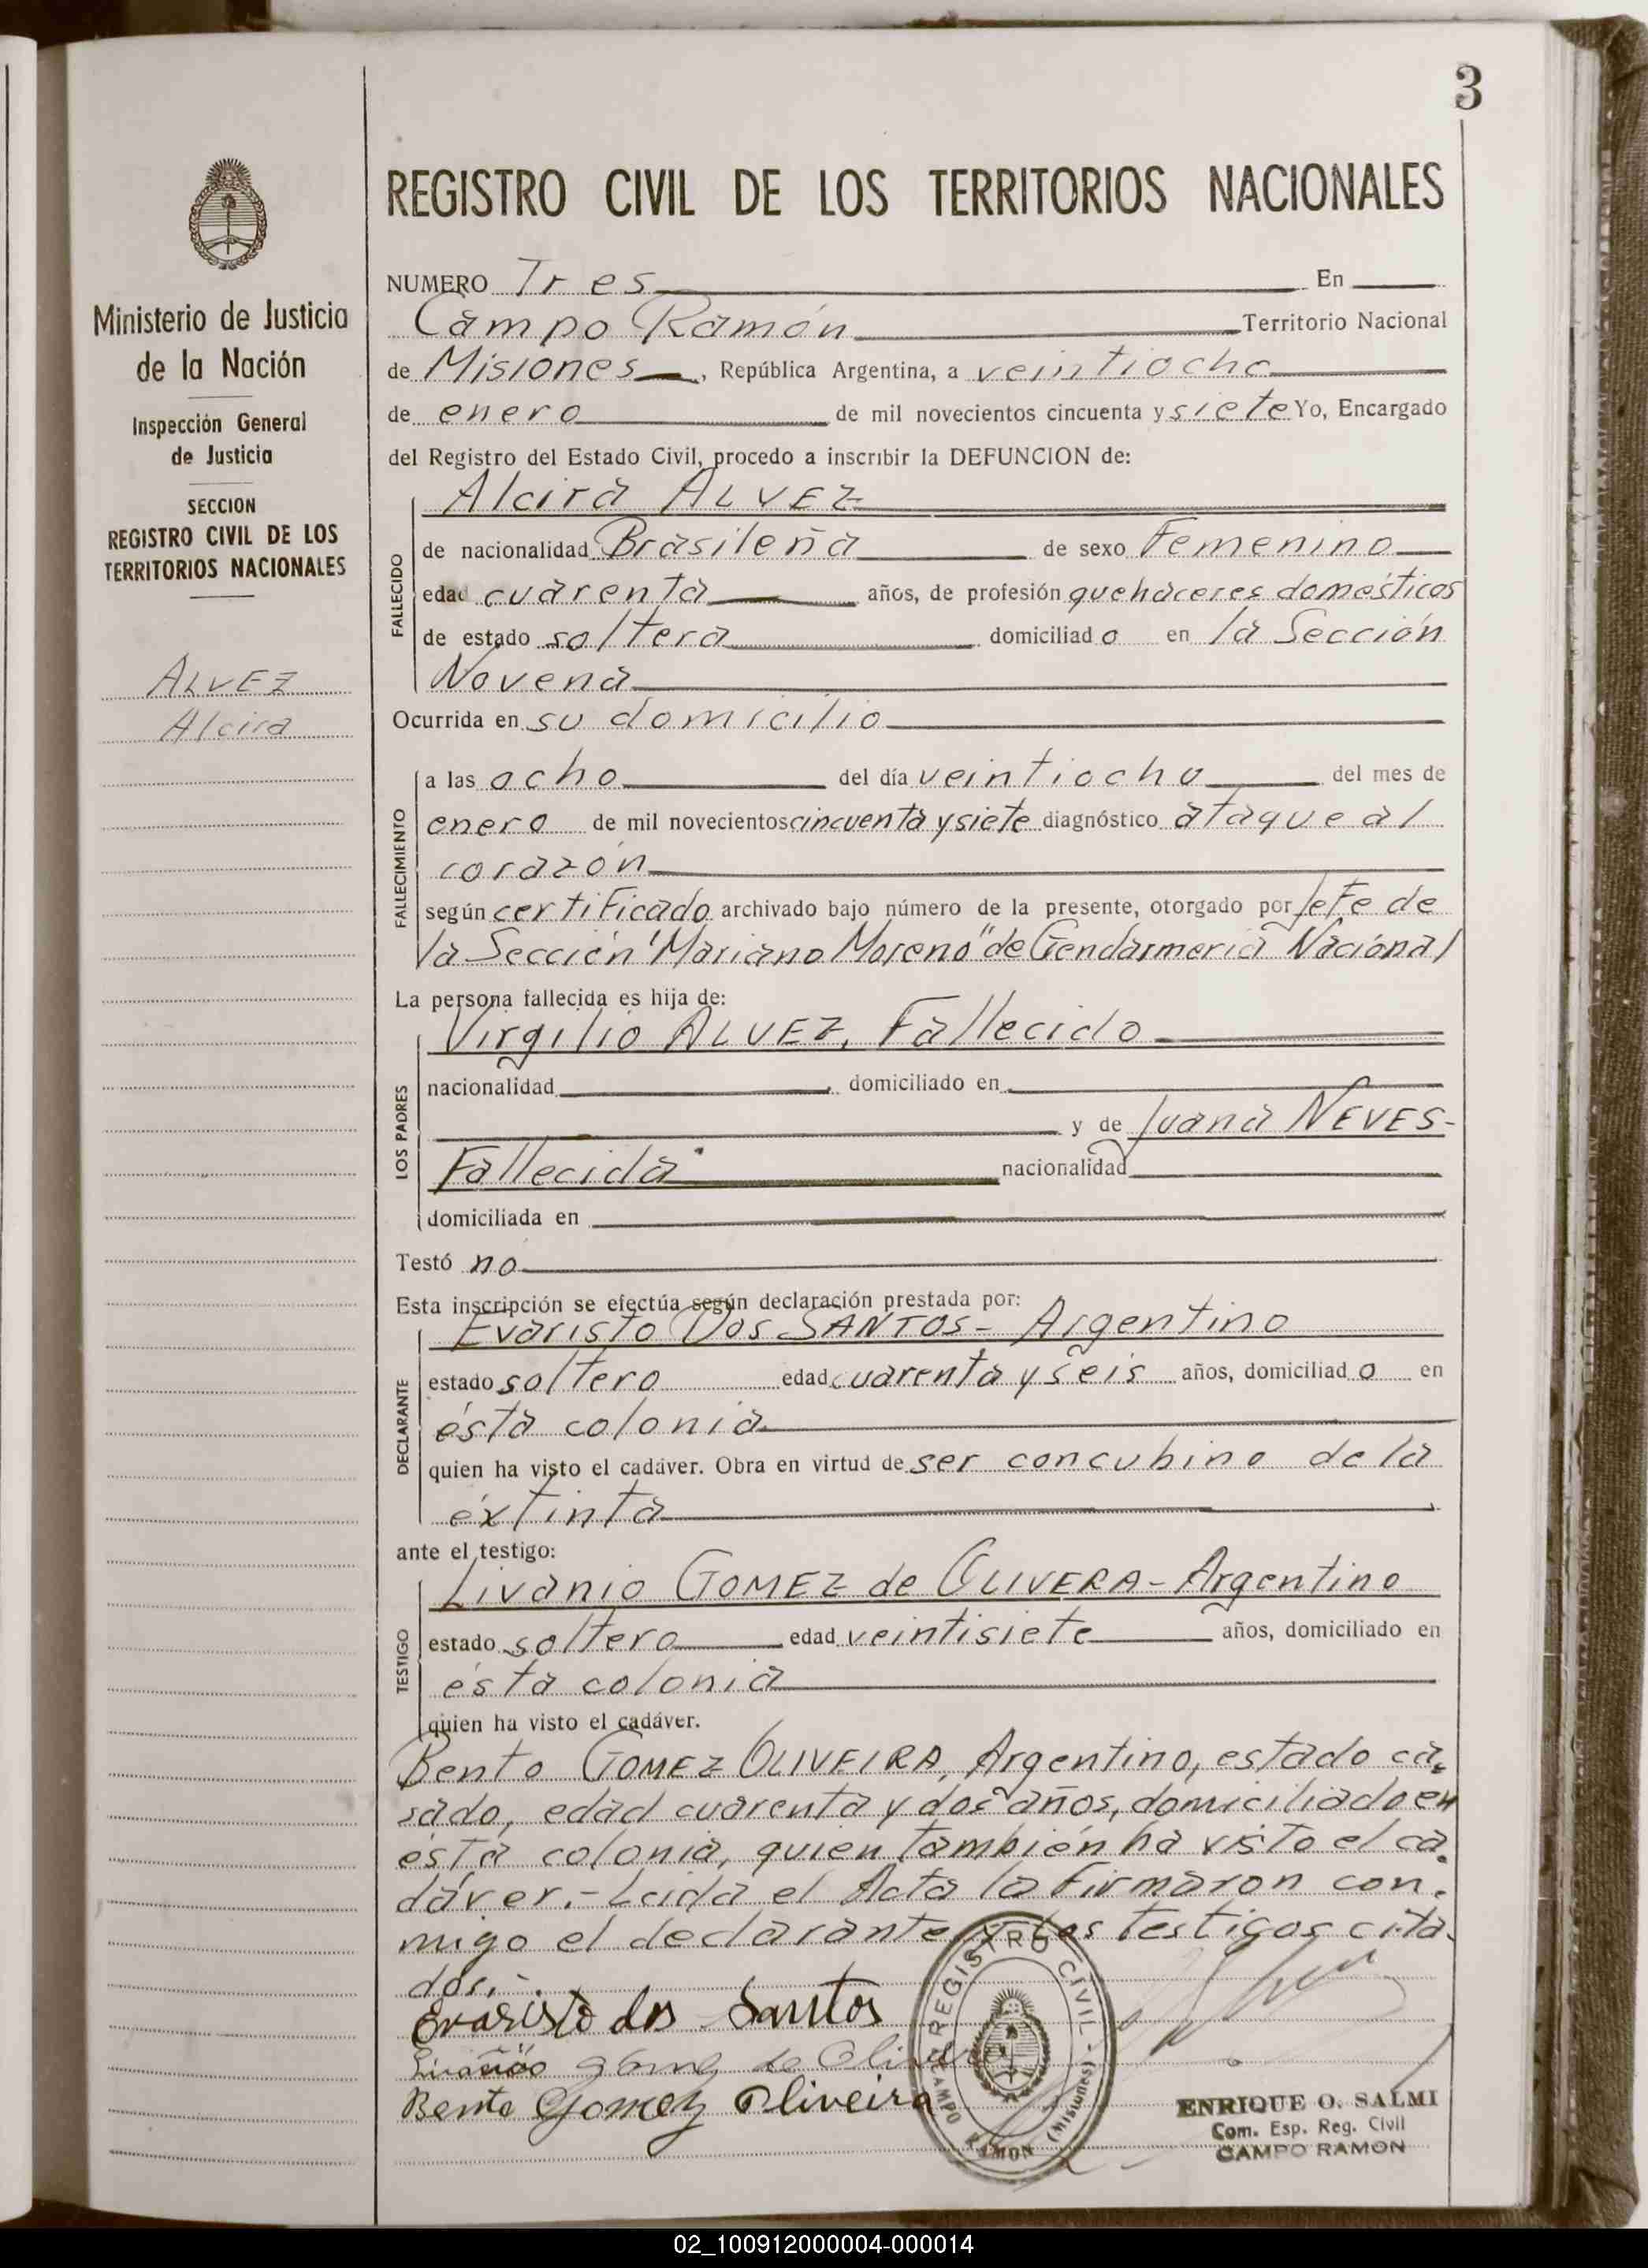 3
REGISTRO CIVIL DE LOS TERRITORIOS NACIONALES
Ministerio de Justicia
de la Nación
Inspección General
de Justicia
SECCION
REGISTRO CIVIL DE LOS
TERRITORIOS NACIONALES
ALVEZ
Alcira
NUMERO Tres En
Campo Ramón Territorio Nacional
de Misiones, República Argentina, a veintiocho
de enero de mil novecientos cincuenta y siete Yo, Encargado
del Registro del Estado Civil, procedo a inscribir la DEFUNCION de:
Alcira ALVEZ
FALLECIDO
de nacionalidad Brasileña de sexo Femenino
edad cuarenta años, de profesión quehaceres domésticos
de estado soltera domiciliado en la Sección
Novena
Ocurrida en su domicilio
FALLECIMIENTO
a las ocho del día veintiocho del mes de
enero de mil novecientos cincuenta y siete diagnóstico ataque al
corazón
según certificado archivado bajo número de la presente, otorgado por Jefe de
la Sección "Mariano Moreno" de Gendarmeria Nacional
La persona fallecida es hija de:
LOS PADRES
Virgilio ALVEZ, Fallecido
nacionalidad domiciliado en
y de Juana NEVES-
Fallecida nacionalidad
domiciliada en
Testó no
Esta inscripción se efectúa según declaración prestada por:
DECLARANTE
Evaristo Dos SANTOS- Argentino
estado soltero edad cuarenta y seis años, domiciliado en
ésta colonia
quien ha visto el cadáver. Obra en virtud de ser concubino de la
éxtinta
ante el testigo:
TESTIGO
Livanio GOMEZ de OLIVERA- Argentino
estado soltero edad veintisiete años, domiciliado en
ésta colonia
quien ha visto el cadáver.
Bento GOMEZ OLIVEIRA, Argentino, estado ca-
sado, edad cuarenta y dos años, domiciliado en
ésta colonia, quien también ha visto el ca-
dáver.- Leida el Acta la firmaron con-
migo el declarante y los testigos cita-
dos.-
Evaristo dos Santos
gomez de
Bento Gomez Oliveira
REGISTRO CIVIL - CAMPO RAMON (Misiones)
ENRIQUE O. SALMI
Com. Esp. Reg. Civil
CAMPO RAMON
02_100912000004-000014